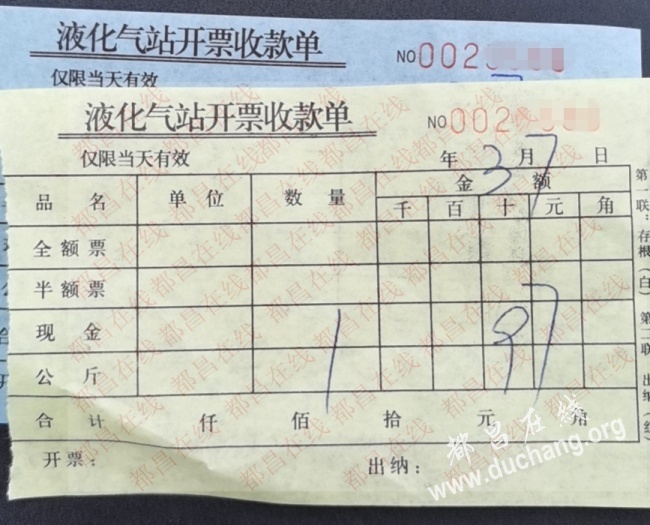 液化气站开票收款单
NO 002
仅限当天有效
液化气站开票收款单
NO 002
仅限当天有效
年 3 月 7 日
品名 单位 数量 金额
千 百 十 元 角
全额票
半额票
现金 1 9 7
公斤
合计 仟 佰 拾 元 角
开票： 出纳：
第一联：存根（白） 第二联 出纳（红）
都昌在线
www.duchang.org